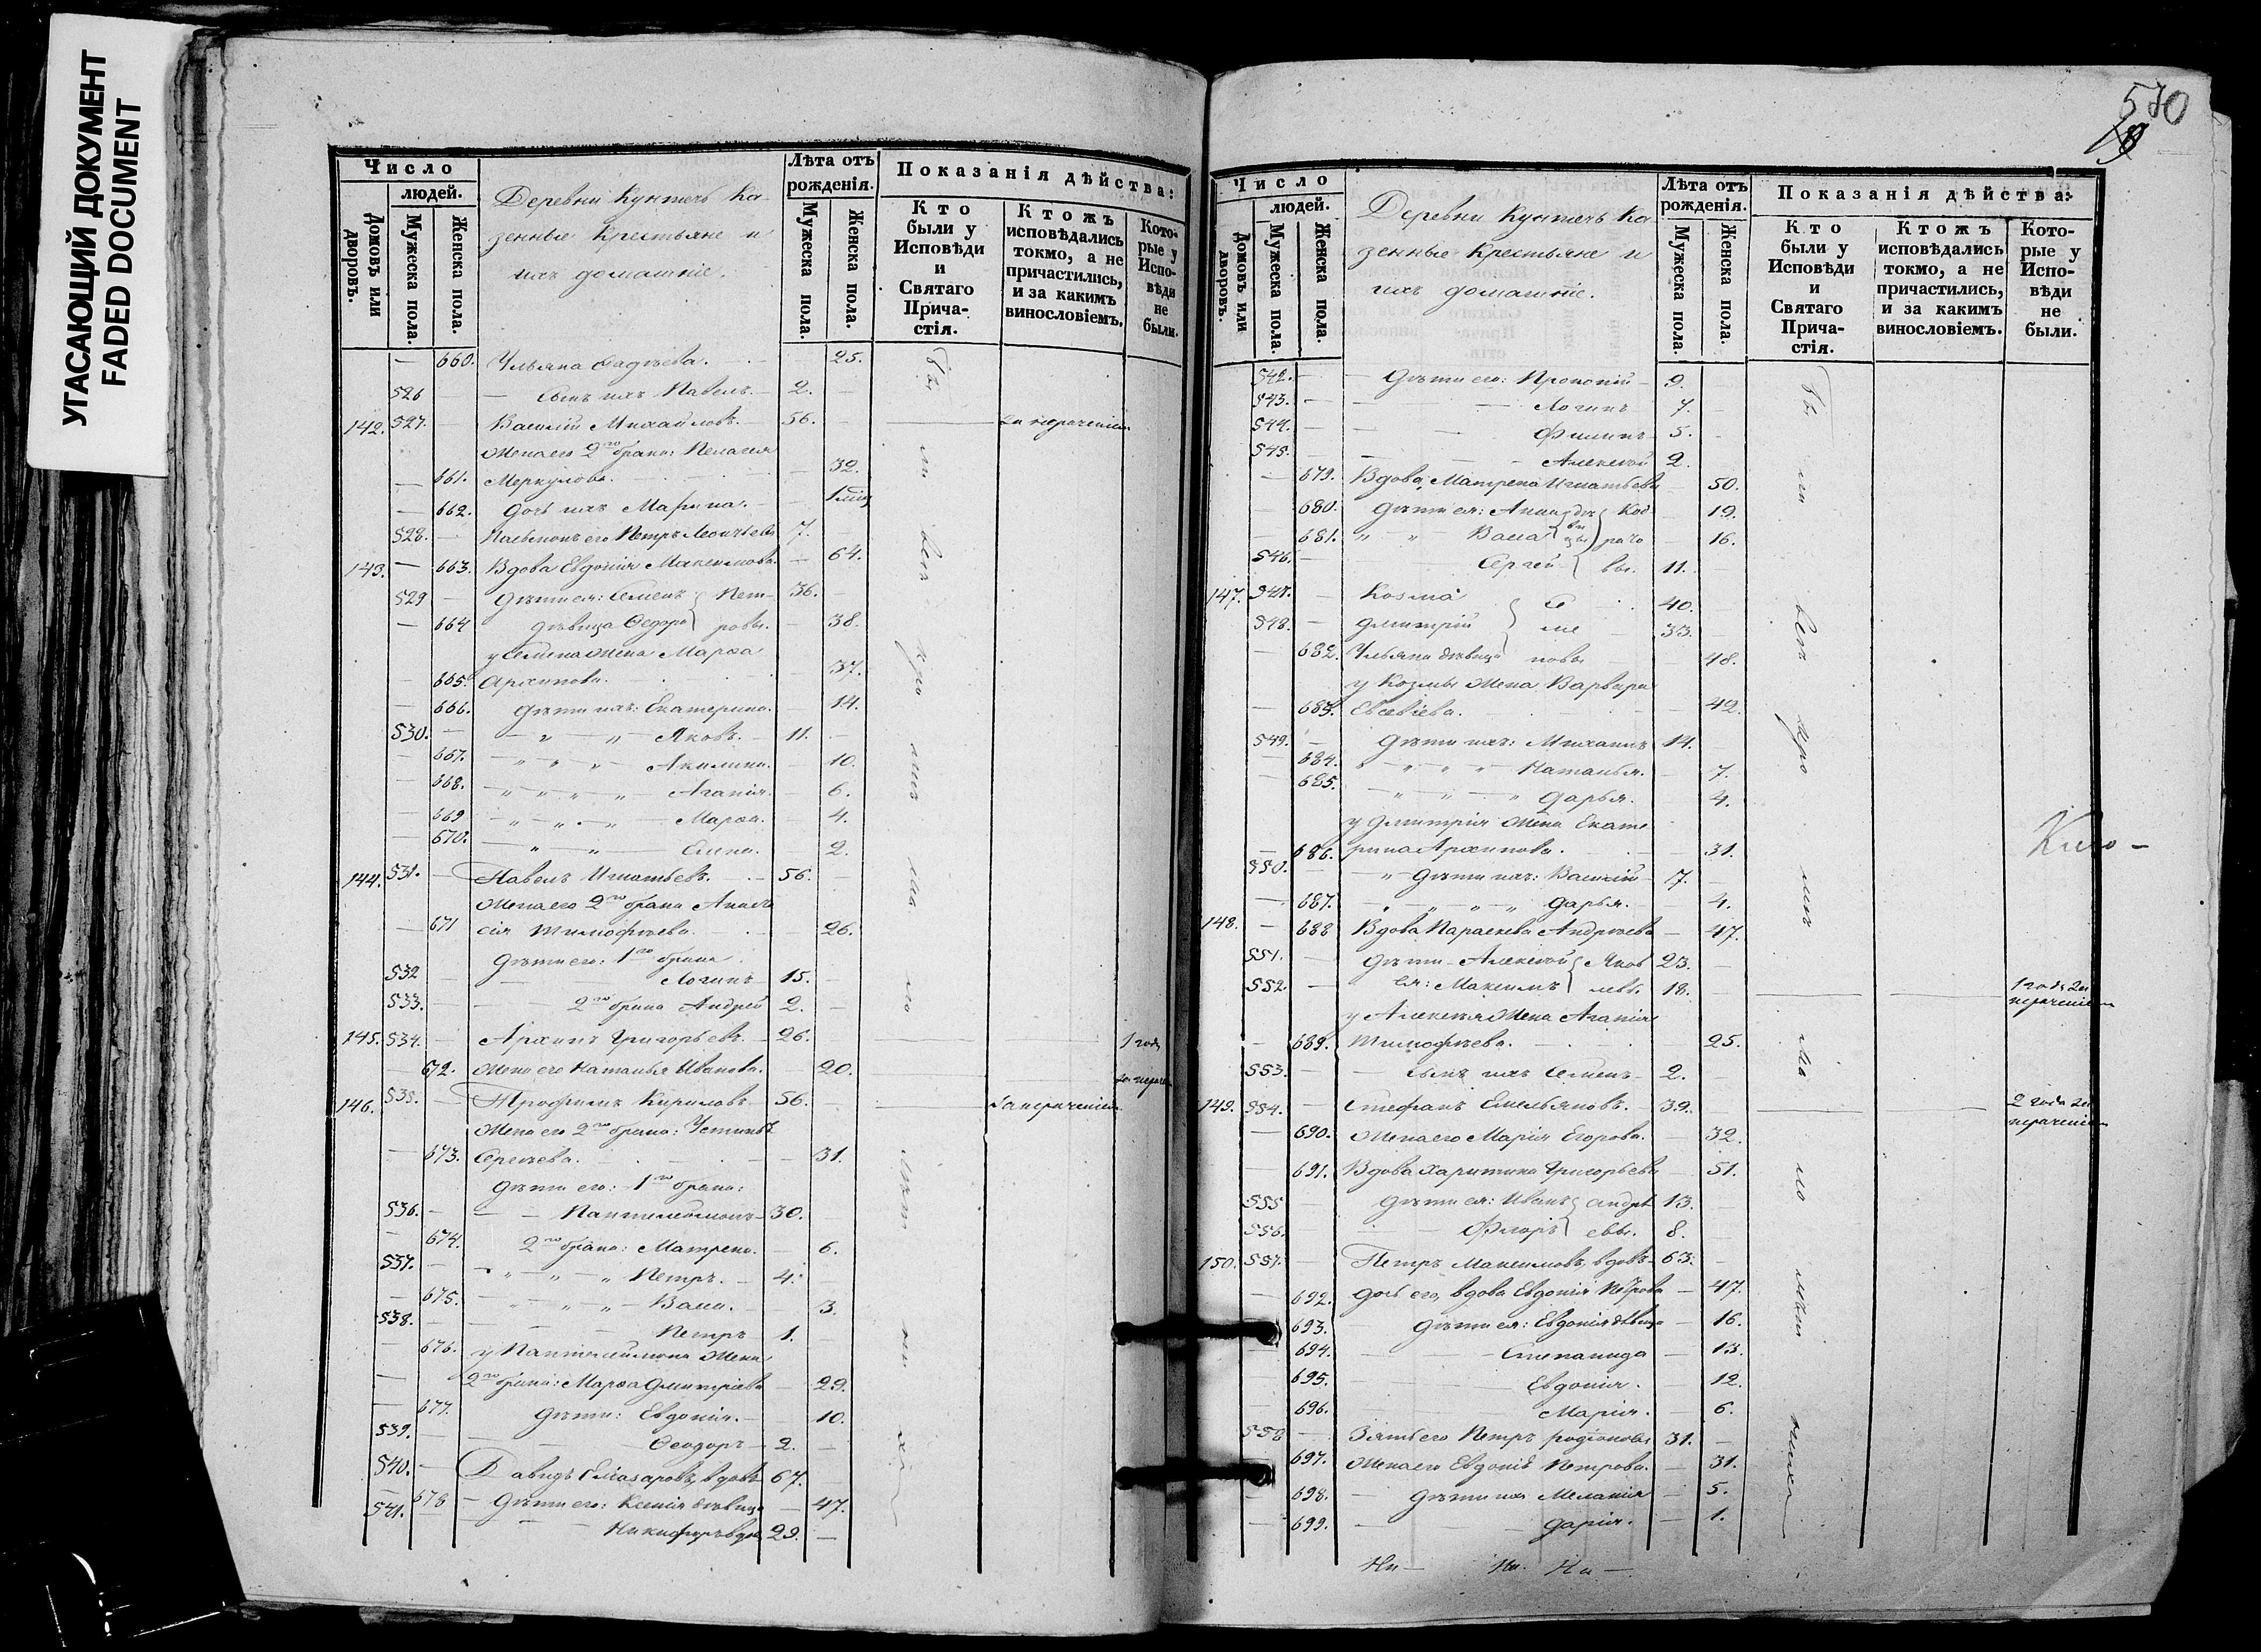 УГАСАЮЩИЙ ДОКУМЕНТ
FADED DOCUMENT
Число
людей.
Домовъ или дворовъ.
Мужеска пола.
Женска пола.
Деревни Кунтечь ка-
зенные крестьяне и
ихъ домашніе.
Лѣта отъ
рожденія.
Мужеска пола.
Женска пола.
Показанія дѣйства:
Кто
были у
Исповѣди
и
Святаго
Прича-
стія.
Ктожъ
исповѣдались
токмо, а не
причастились,
и за какимъ
винословіемъ.
Кото-
рые у
Испо-
вѣди
не
были.
— 660. Ульяна Фадѣева. 25.
526 — Сынъ ихъ Павелъ. 2.
142. 527. Василій Михайловъ. 56. за нераченіемъ
Жена его 2го брака: Пелагея
— 661. Меркулова. 32.
— 662. Дочь ихъ Марина.
528. Пасынокъ его Петръ Леонтьевъ 7.
143. — 663. Вдова Евдокія Максимова. 64.
529 Дѣти ея: Семенъ Пет- 36.
— 664 дѣвица Ѳедора ровы. 38.
у Семена жена Марѳа
— 665. Архипова. 37.
— 666. Дѣти ихъ: Екатерина. 14.
530. — Яковъ. 11.
— 667. Акилина. 10.
— 668. Агапія. 6.
— 669 Марѳа. 4.
— 670. Елена. 2.
144. 531. Павелъ Игнатьевъ. 56.
Жена его 2го брака Анаста
— 671 сія Тимофѣева. 26.
Дѣти его: 1го брака
532 Логинъ 15.
533. 2го брака Андрей 2.
145. 534. Архипъ Григорьевъ. 26. 1 годъ
672. Жена его Наталья Иванова. 20. за нерачен
146. 535. Трофимъ Кириловъ 56. за нераченіемъ
Жена его 2го брака: Устинья
— 673. Сергѣева. 31.
Дѣти его: 1го брака:
536. Пантелеймонъ 30.
— 674. 2го брака: Матрена. 6.
537. Петръ. 4.
— 675. Васса. 3.
538. Петръ 1.
— 676. у Пантелеймона жена
2го брака: Марѳа Дмитріева 29.
— 677. Дѣти: Евдокія. 10.
539. Ѳеодоръ 2.
540. Давидъ Елеазаровъ, вдовъ 67.
— 678 Дѣти его: Ксенія дѣвица 47.
541. Никифоръ вдов 29.
570
Число
людей.
Домовъ или дворовъ.
Мужеска пола.
Женска пола.
Деревни Кунтечь ка
зенные крестьяне и
ихъ домашніе.
Лѣта отъ
рожденія.
Мужеска пола.
Женска пола.
Показанія дѣйства:
Кто
были у
Исповѣди
и
Святаго
Прича-
стія.
Ктожъ
исповѣдались
токмо, а не
причастились,
и за какимъ
винословіемъ.
Кото-
рые у
Испо-
вѣди
не
были.
542. Дѣти его: Прокопій 9.
543. Логинъ 7.
544. Филипъ 5.
545. Алексѣй 2.
— 679. Вдова, Матрена Игнатьева 50.
— 680. Дѣти ея: Анна 19.
— 681. Васса 16.
546. Сергѣй вы. 11.
147. 547. Козма Се 40.
548. Дмитрій ме 33.
— 682. Ульяна дѣвица новы 48.
у Козмы жена Варвара
— 683. Евсевіева. 42.
549. Дѣти ихъ: Михаилъ 14.
— 684. Наталья. 7.
— 685. Дарья. 4.
у Дмитрія жена Екате
— 686. рина Архипова. 31.
550. Дѣти ихъ: Василій 7.
— 687. Дарья. 4.
148. — 688 Вдова Параскева Андрѣева 47.
551. Дѣти Алексѣй Яков 23.
552. ея: Максимъ левы. 18. 1 годъ за
нераченіем
у Алексѣя жена Агапія
— 689. Тимофѣева. 25.
553. Сынъ ихъ Семенъ 2.
149. 554. Стефанъ Емельяновъ. 39. 2 года за
нераченіем
— 690. Жена его Марія Егорова. 32.
— 691. Вдова Харитина Григорьева 51.
555 Дѣти ея: Иванъ Андре 13.
556. Флоръ евы. 8.
150. 557. Петръ Максимовъ, вдовъ 63.
— 692. Дочь его, вдова Евдокія Петрова 47.
— 693. Дѣти ея: Евдокія дѣвица 16.
— 694. Степанида 13.
— 695. Евдокія. 12.
— 696. Марія. 6.
558 Зять его Петръ Родіоновъ 31.
— 697. Жена его Евдокія Петрова. 31.
— 698. Дѣти ихъ Меланія 5.
— 699. Дарія. 1.